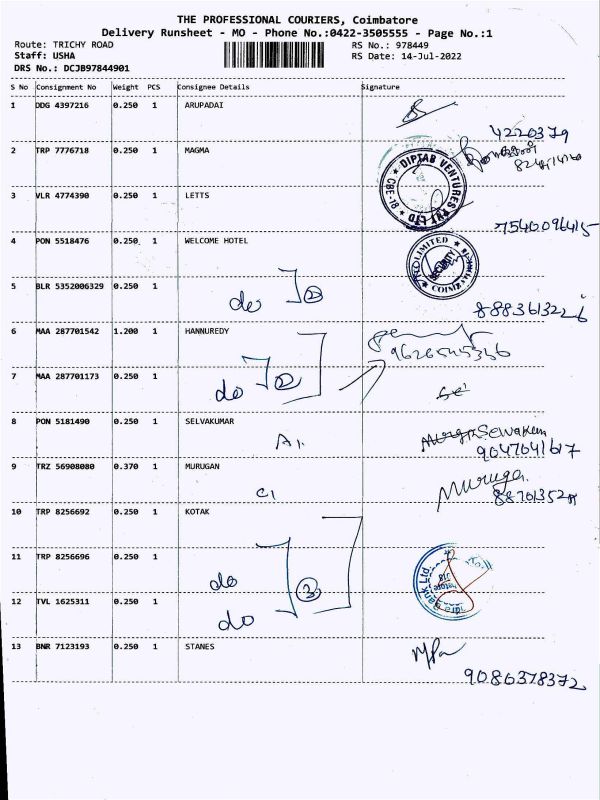 THE PROFESSIONAL COURIERS, Coimbatore
Delivery Runsheet - MO - Phone No.:0422-3505555 - Page No.:1
Route: TRICHY ROAD RS No.: 978449
Staff: USHA RS Date: 14-Jul-2022
DRS No.: DCJB97844901
S No Consignment No Weight PCS Consignee Details Signature
1 DDG 4397216 0.250 1 ARUPADAI
4220379
2 TRP 7776718 0.250 1 MAGMA
DIPTAB VENTURES PVT LTD
CBE-18
3 VLR 4774390 0.250 1 LETTS
7540096415
4 PON 5518476 0.250 1 WELCOME HOTEL
LIMITED
SECURITY
COIMBA
5 BLR 5352006329 0.250 1
do 2
8883613226
6 MAA 287701542 1.200 1 HANNUREDY
9626545346
7 MAA 287701173 0.250 1
do 2
8 PON 5181490 0.250 1 SELVAKUMAR
A1. Selvakum
9047041617
9 TRZ 56908080 0.370 1 MURUGAN
C1 Muruga
10 TRP 8256692 0.250 1 KOTAK
11 TRP 8256696 0.250 1
do 3
Bank Ltd.
12 TVL 1625311 0.250 1
do
13 BNR 7123193 0.250 1 STANES
9086378372